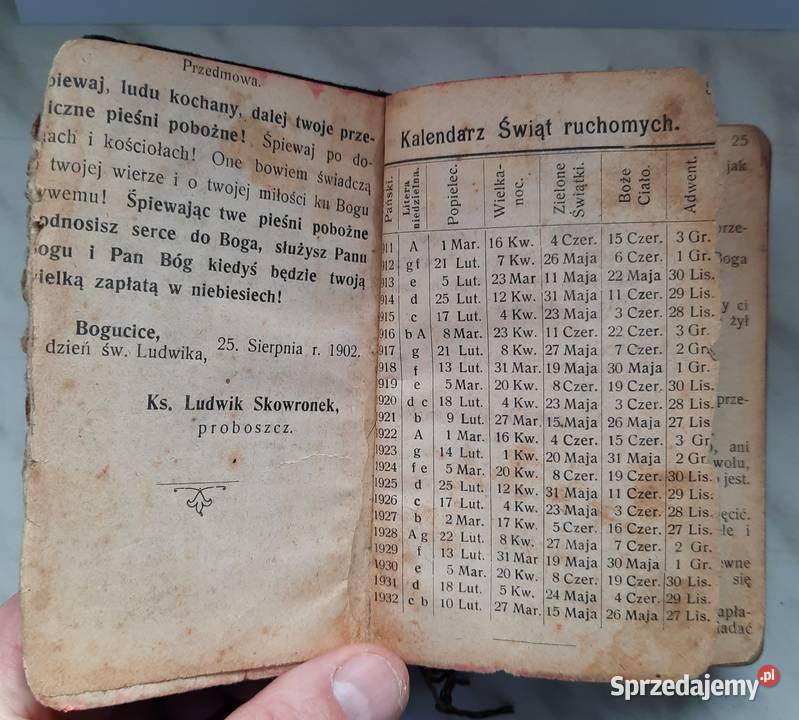 Przedmowa.
piewaj, ludu kochany, dalej twoje prze-
iczne pieśni pobożne! Śpiewaj po do-
ach i kościołach! One bowiem świadczą
twojej wierze i o twojej miłości ku Bogu
ywemu! Śpiewając twe pieśni pobożne
odnosisz serce do Boga, służysz Panu
ogu i Pan Bóg kiedyś będzie twoją
ielką zapłatą w niebiesiech!
Bogucice,
dzień św. Ludwika, 25. Sierpnia r. 1902.
Ks. Ludwik Skowronek,
proboszcz.
Kalendarz Świąt ruchomych.
Pański. Litera niedzielna. Popielec. Wielka-noc. Zielone Świątki. Boże Ciało. Adwent.
911 A 1 Mar. 16 Kw. 4 Czer. 15 Czer. 3 Gr.
912 g f 21 Lut. 7 Kw. 26 Maja 6 Czer. 1 Gr.
913 e 5 Lut. 23 Mar 11 Maja 22 Maja 30 Lis.
914 d 25 Lut. 12 Kw. 31 Maja 11 Czer. 29 Lis.
915 c 17 Lut. 4 Kw. 23 Maja 3 Czer. 28 Lis.
916 b A 8 Mar. 23 Kw. 11 Czer. 22 Czer. 3 Gr.
917 g 21 Lut. 8 Kw. 27 Maja 7 Czer. 2 Gr
918 f 13 Lut. 31 Mar. 19 Maja 30 Maja 1 Gr.
1919 e 5 Mar. 20 Kw. 8 Czer. 19 Czer. 30 Lis.
1920 d c 18 Lut. 4 Kw. 23 Maja 3 Czer. 28 Lis.
1921 b 9 Lut. 27 Mar. 15 Maja 26 Maja 27 Lis
1922 A 1 Mar. 16 Kw. 4 Czer. 15 Czer. 3 Gr
1923 g 14 Lut. 1 Kw. 20 Maja 31 Maja 2 Gr
1924 f e 5 Mar. 20 Kw. 8 Czer. 19 Czer. 30 Lis.
1925 d 25 Lut. 12 Kw. 31 Maja 11 Czer. 29 Lis.
1926 c 17 Lut. 4 Kw. 23 Maja 3 Czer. 28 Lis.
1927 b 2 Mar. 17 Kw. 5 Czer. 16 Czer. 27 Lis.
1928 A g 22 Lut. 8 Kw. 27 Maja 7 Czer. 2 Gr.
1929 f 13 Lut. 31 Mar 19 Maja 30 Maja 1 Gr.
1930 e 5 Mar. 20 Kw. 8 Czer. 19 Czer. 30 Lis.
1931 d 18 Lut. 5 Kw. 24 Maja 4 Czer. 29 Lis.
1932 c b 10 Lut. 27 Mar. 15 Maja 26 Maja 27 Lis.
25
jak
rze-
Boga
y ci
żył
prze-
, ani
wołu,
jest.
ęcić.
le i
ewne
się
apła-
iadać
Sprzedajemy.pl